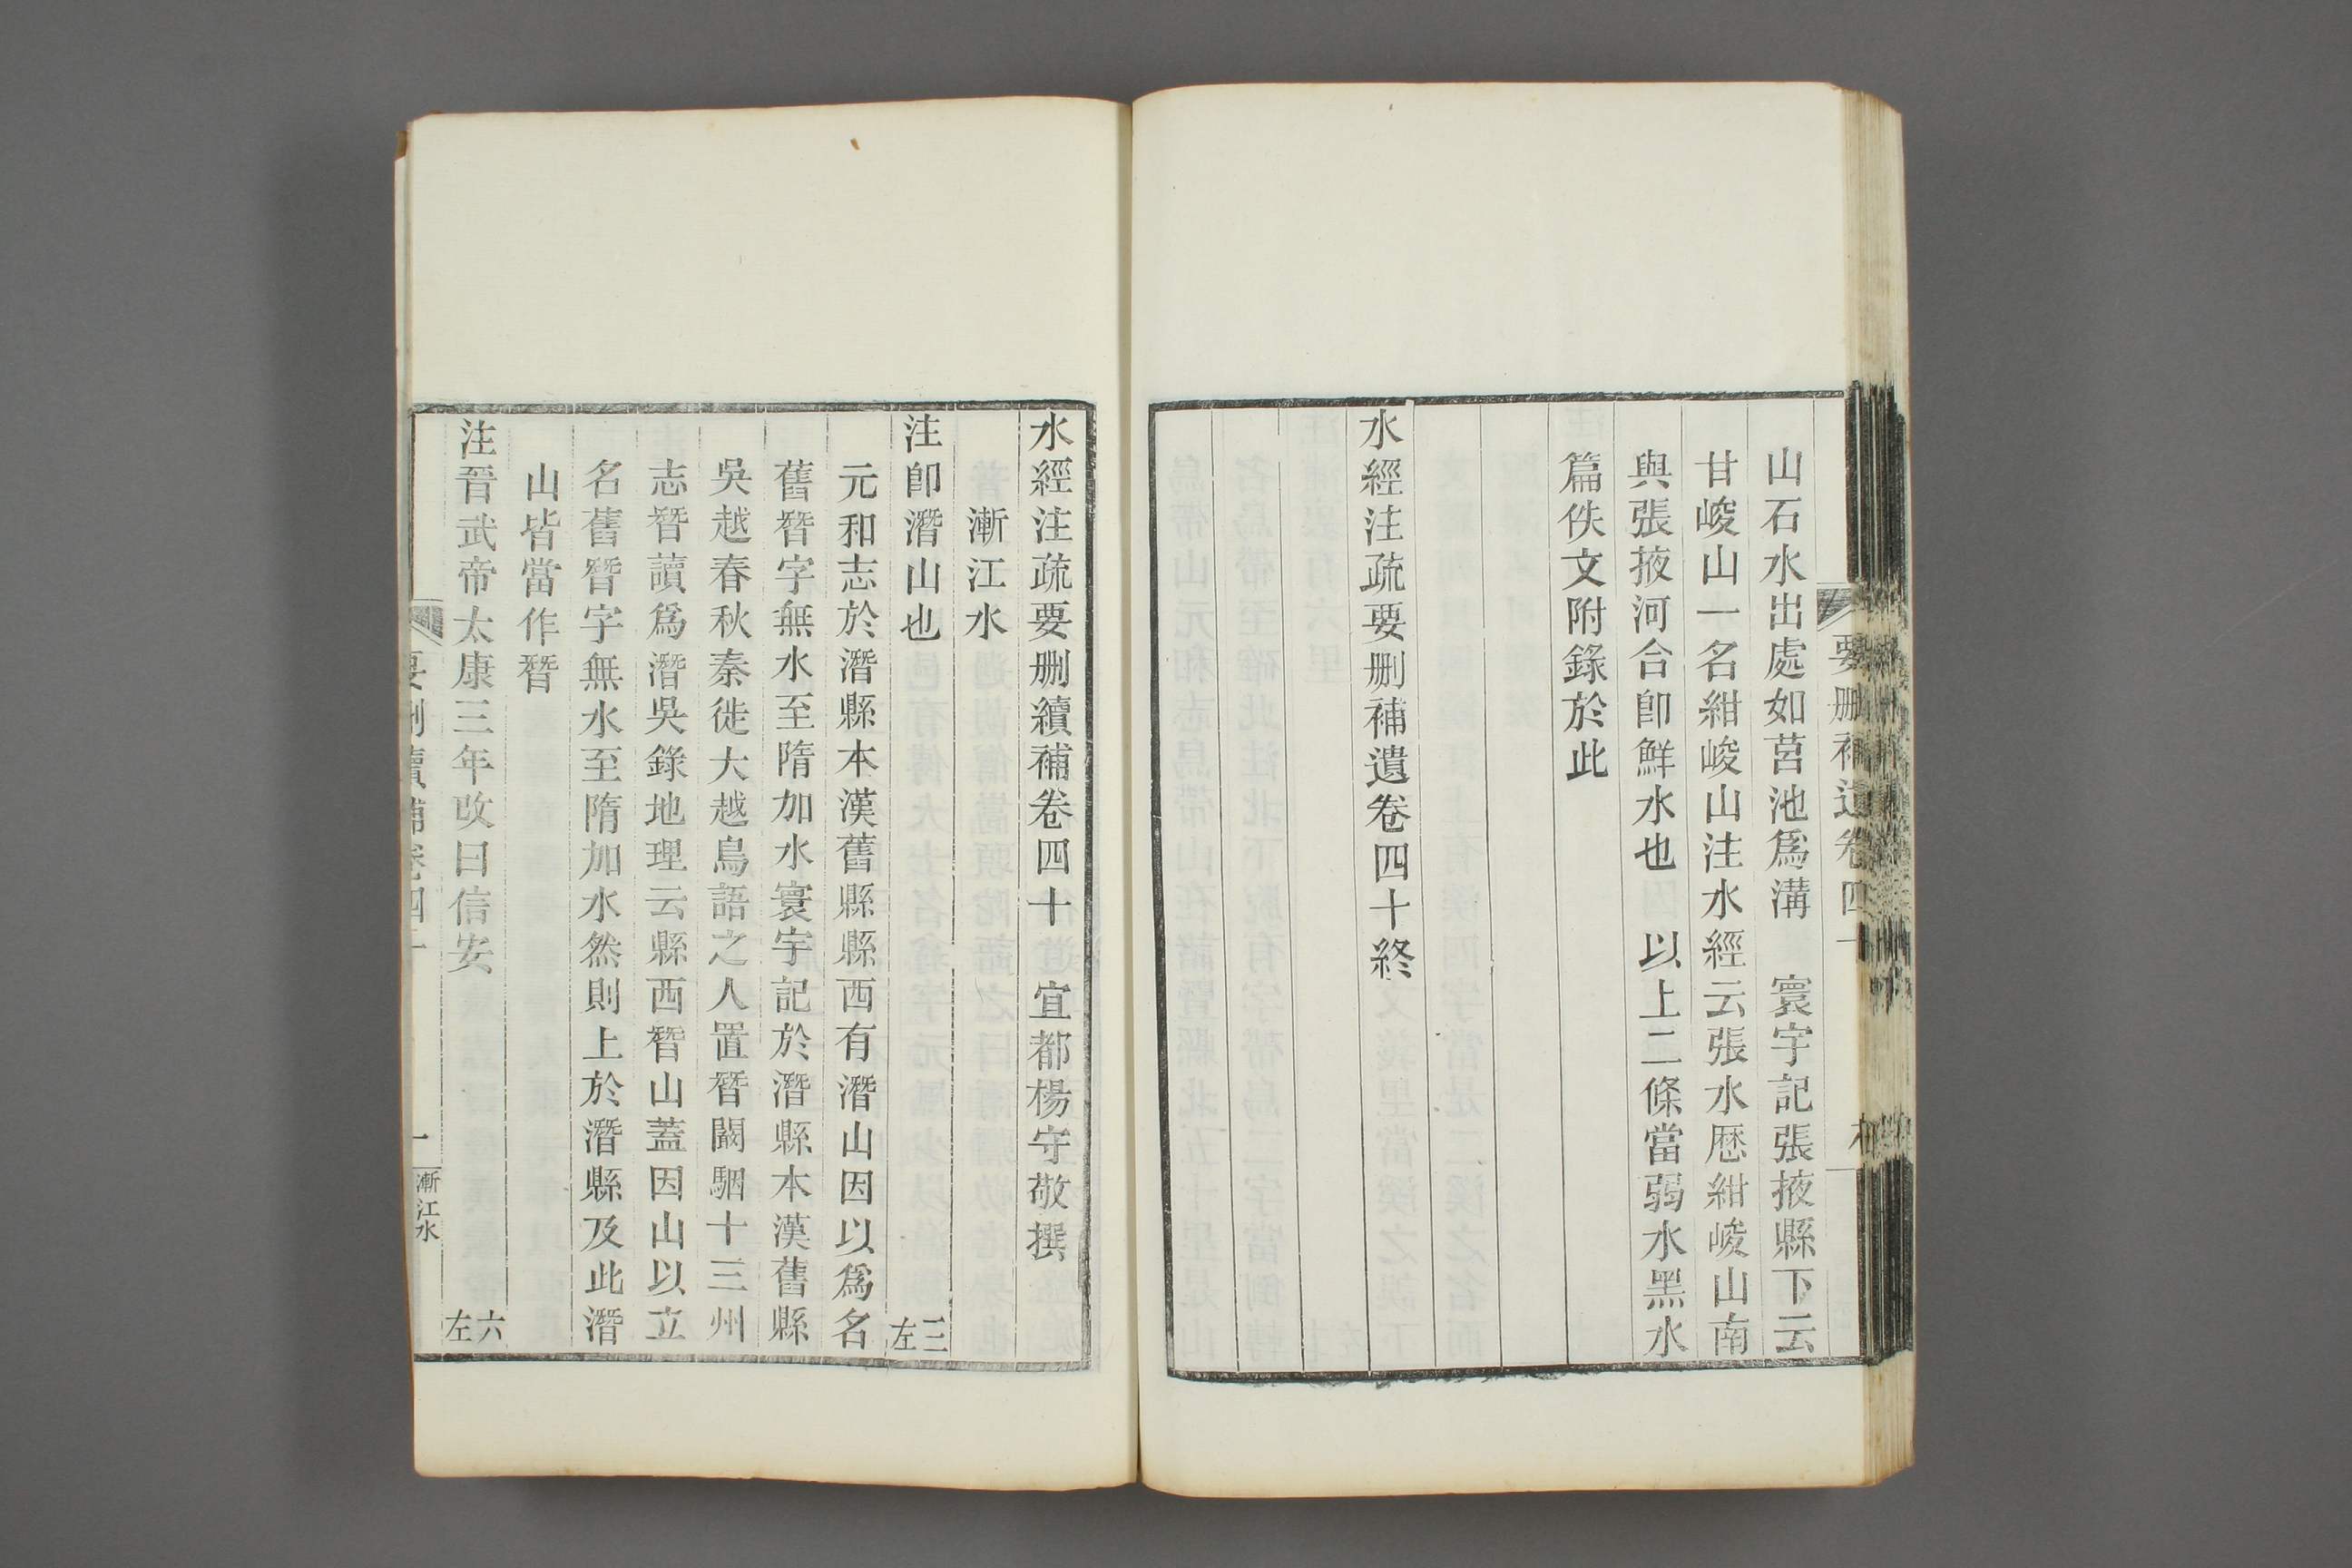 要删補遺卷四十
山石水出處如莒池爲溝　寰宇記張掖縣下云
甘峻山一名紺峻山注水經云張水歷紺峻山南
與張掖河合卽鮮水也　以上二條當弱水黑水
篇佚文附錄於此
水經注疏要删補遺卷四十終
水經注疏要删續補卷四十　宜都楊守敬撰
漸江水
注卽潛山也　三左
元和志於潛縣本漢舊縣縣西有潛山因以爲名
舊朁字無水至隋加水寰宇記於潛縣本漢舊縣
吳越春秋秦徙大越鳥語之人置朁闞駰十三州
志朁讀爲潛吳錄地理云縣西朁山蓋因山以立
名舊朁字無水至隋加水然則上於潛縣及此潛
山皆當作朁
注晉武帝太康三年改曰信安　六左
要删續補卷四十　一　漸江水